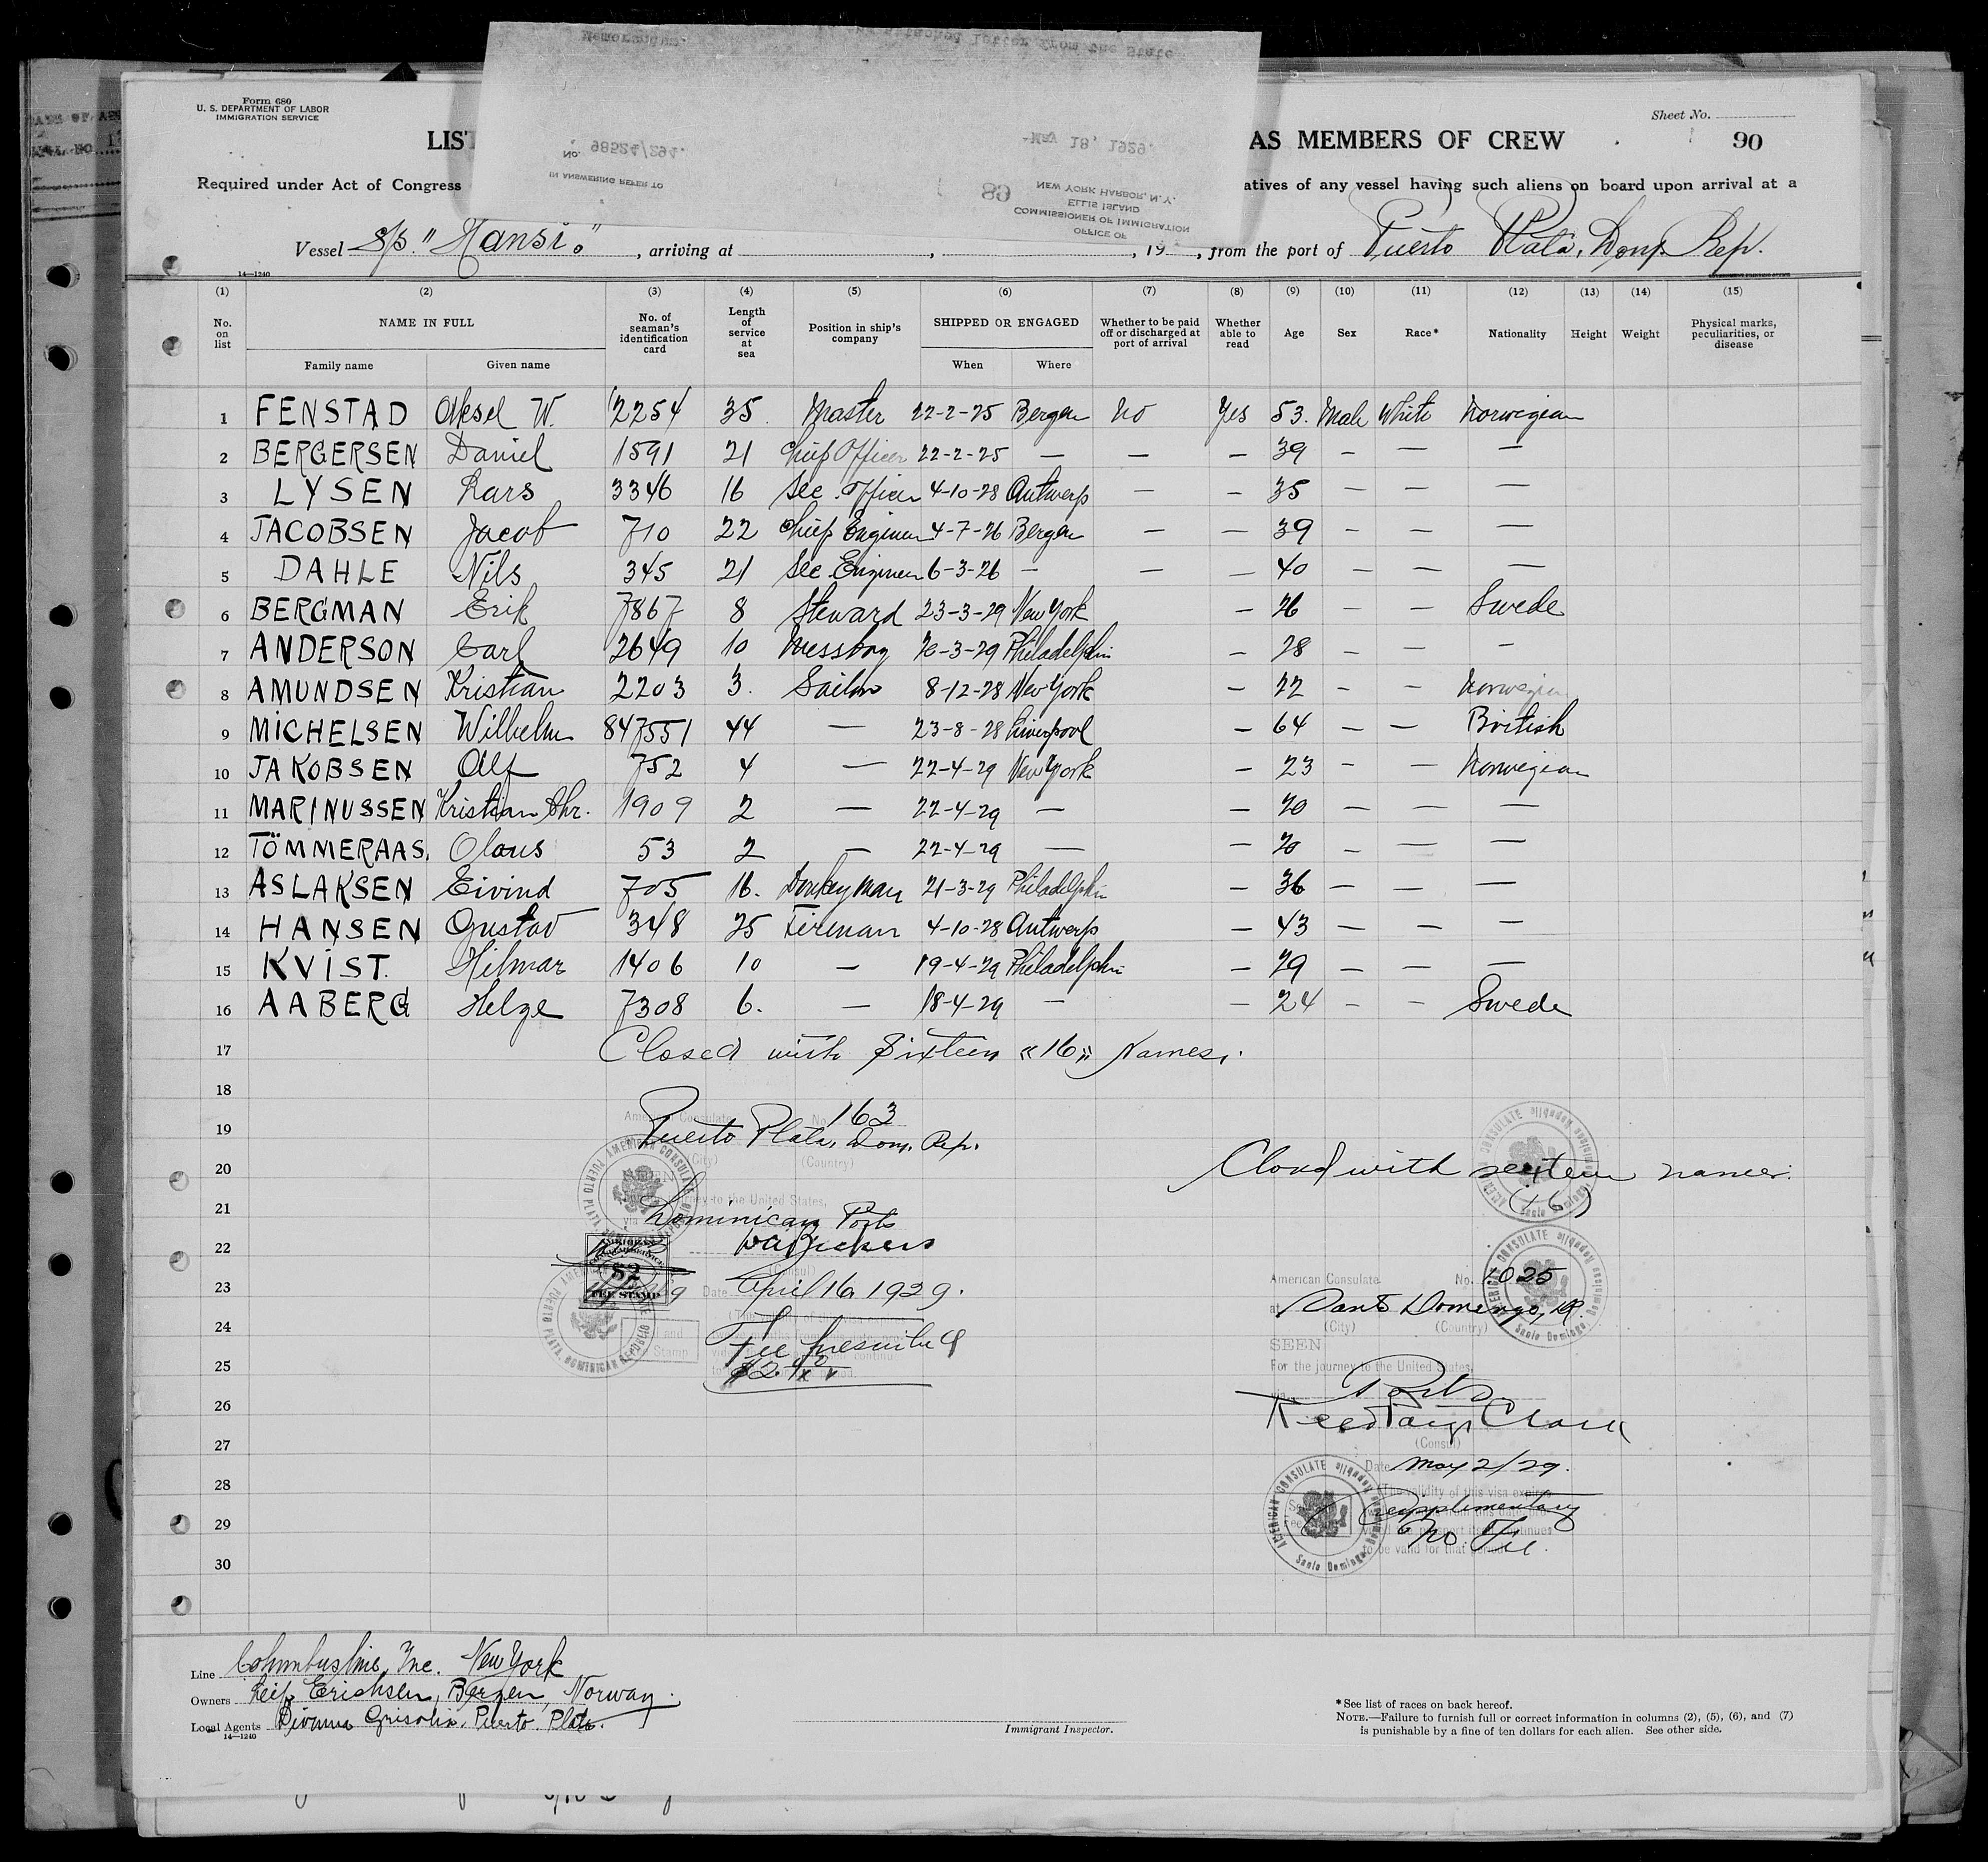 Memorandum. attached letter from the State
Form 680
U. S. DEPARTMENT OF LABOR
IMMIGRATION SERVICE
Sheet No.
LIST AS MEMBERS OF CREW 90
No. 98524/294. May 18, 1929.
IN ANSWERING REFER TO
89
OFFICE OF
COMMISSIONER OF IMMIGRATION
ELLIS ISLAND
NEW YORK HARBOR, N.Y.
Required under Act of Congress atives of any vessel having such aliens on board upon arrival at a
Vessel S/S. "Hansi", arriving at , 19 , from the port of Puerto Plata, Dom. Rep.
14—1240
(1) (2) (3) (4) (5) (6) (7) (8) (9) (10) (11) (12) (13) (14) (15)
No. on list NAME IN FULL No. of seaman's identification card Length of service at sea Position in ship's company SHIPPED OR ENGAGED Whether to be paid off or discharged at port of arrival Whether able to read Age Sex Race* Nationality Height Weight Physical marks, peculiarities, or disease
Family name Given name When Where
1 FENSTAD Aksel W. 12254 35 Master 22-2-25 Bergen No Yes 53. Male White Norwegian
2 BERGERSEN Daniel 1591 21 Chief Officer 22-2-25 — — — 39 — — —
3 LYSEN Lars 3346 16 Sec. Officer 4-10-28 Antwerp — — 35 — — —
4 JACOBSEN Jacob 710 22 Chief Engineer 4-7-26 Bergen — — 39 — — —
5 DAHLE Nils 345 21 Sec. Engineer 6-3-26 — — — 40 — — —
6 BERGMAN Erik 7867 8 Steward 23-3-29 New York — 26 — — Swede
7 ANDERSON Carl 2649 10 Messboy -3-29 Philadelphia — 28 — — -
8 AMUNDSEN Kristian 2203 3. Sailor 8-12-28 New York — 22 — — Norwegian
9 MICHELSEN Wilhelm 847551 44 — 23-8-28 Liverpool — 64 — — British
10 JAKOBSEN Alf 752 4 — 22-4-29 New York — 23 - — Norwegian
11 MARINUSSEN Kristian Chr. 1909 2 — 22-4-29 — — 20 — — —
12 TÖMMERAAS. Olaus 53 2 — 22-4-29 — — 20 — — —
13 ASLAKSEN Eivind 705 16. Donkeyman 21-3-29 Philadelphia — 36 — — —
14 HANSEN Gustav 348 25 Fireman 4-10-28 Antwerp — 43 — — —
15 KVIST. Hilmar 1406 10 — 19-4-29 Philadelphia — 29 — — —
16 AABERG Helge 7308 6. — 18-4-29 — — 24 — — Swede
17 Closed with Sixteen «16» Names.
18
American Consulate No. 163
19 Puerto Plata, Dom. Rep.
(City) (Country)
20 SEEN
For the journey to the United States,
21 via Dominican Ports
22 W A Bickers
(Consul)
23 Date April 16 1929.
24 Fee prescribed
25 $2.
AMERICAN CONSULATE PUERTO PLATA, DOMINICAN REPUBLIC
AMERICAN $2 FEE STAMP
AMERICAN CONSULATE PUERTO PLATA, DOMINICAN REPUBLIC
Closed with sixteen names.
(16)
AMERICAN CONSULATE Santo Domingo, Dominican Republic
American Consulate No. 1025
at Santo Domingo, D.R.
(City) (Country)
AMERICAN CONSULATE Santo Domingo, Dominican Republic
SEEN
For the journey to the United States,
via Ports
26 Reed Paige Clark
27 (Consul)
Date May 2/29.
28 The validity of this visa expires
29 Complimentary
No. Fee.
to be valid for that period.
AMERICAN CONSULATE Santo Domingo, Dominican Republic
30
Line Columbus Line, Inc. New York
Owners Leif Erichsen, Bergen, Norway.
Local Agents Divanna Grisolia. Puerto Plata.
14—1240
Immigrant Inspector.
*See list of races on back hereof.
NOTE.—Failure to furnish full or correct information in columns (2), (5), (6), and (7)
is punishable by a fine of ten dollars for each alien. See other side.